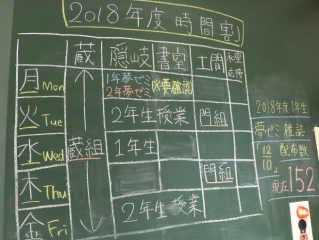 2018年度時間割
蔵 隠岐書室 土間
月 Mon 1年夢ゼミ
2年夢ゼミ ※要確認
火 Tue 2年生授業 門組
水 Wed 蔵組 1年生
木 Thu 門組
金 Fri 2年生 授業
2018年度1年生
夢ゼミ雑誌
「12/10」配布数
現在152